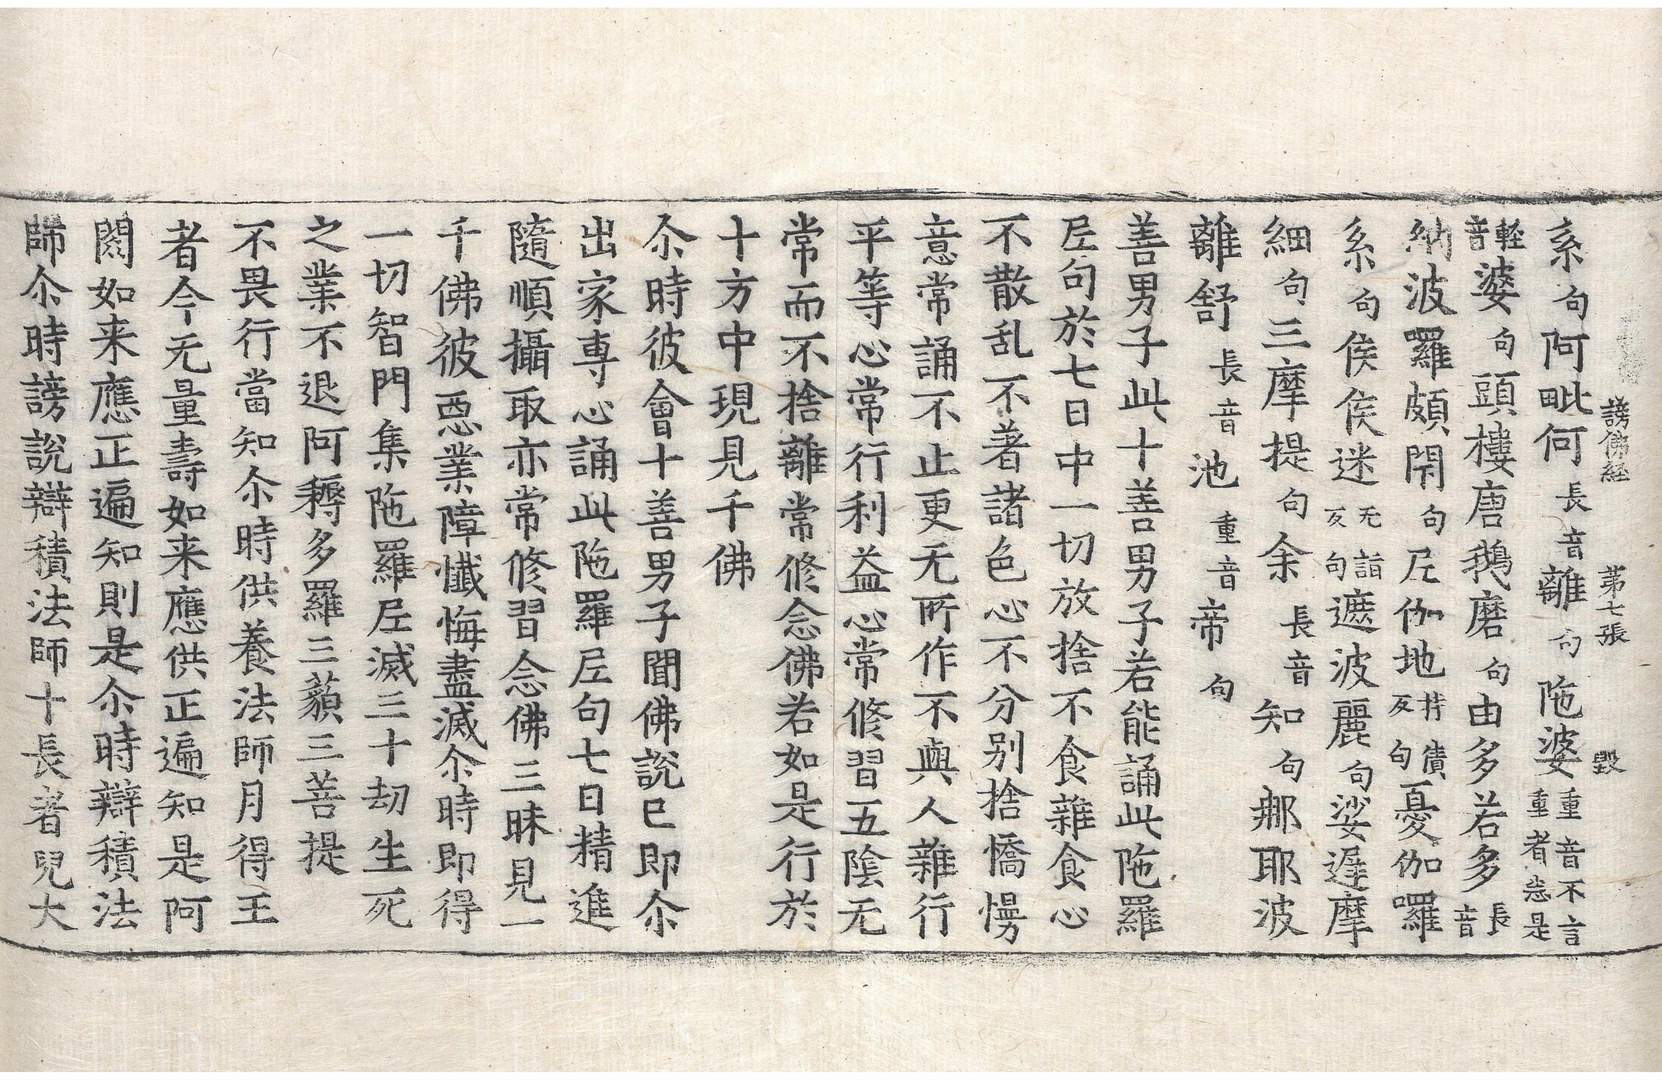 謗佛經 第七張 毀
系句阿毗何長音離句陁婆重音不言重者忩是
軽音婆句頭樓唐鵝磨句由多若多長音
納波囉頗閇句𡰱伽地持債反句憂伽囉
系句侯侯迷无詣反句遮波麗句娑遅摩
細句三摩提句余長音知句梛耶波
離舒長音池重音帝句
善男子此十善男子若能誦此陁羅
𡰱句於七日中一切放捨不食雜食心
不散乱不著諸色心不分別捨憍慢
意常誦不止更无所作不與人雜行
平等心常行利益心常修習五陰无
常而不捨離常修念佛若如是行於
十方中現見千佛
尒時彼會十善男子聞佛說已即尒
出家專心誦此陁羅𡰱句七日精進
隨順攝取亦常修習念佛三昧見一
千佛彼惡業障懺悔盡滅尒時即得
一切智門集陁羅𡰱滅三十劫生死
之業不退阿耨多羅三藐三菩提
不畏行當知尒時供養法師月得王
者今无量壽如来應供正遍知是阿
閦如来應正遍知則是尒時辯積法
師尒時謗說辯積法師十長者兒大